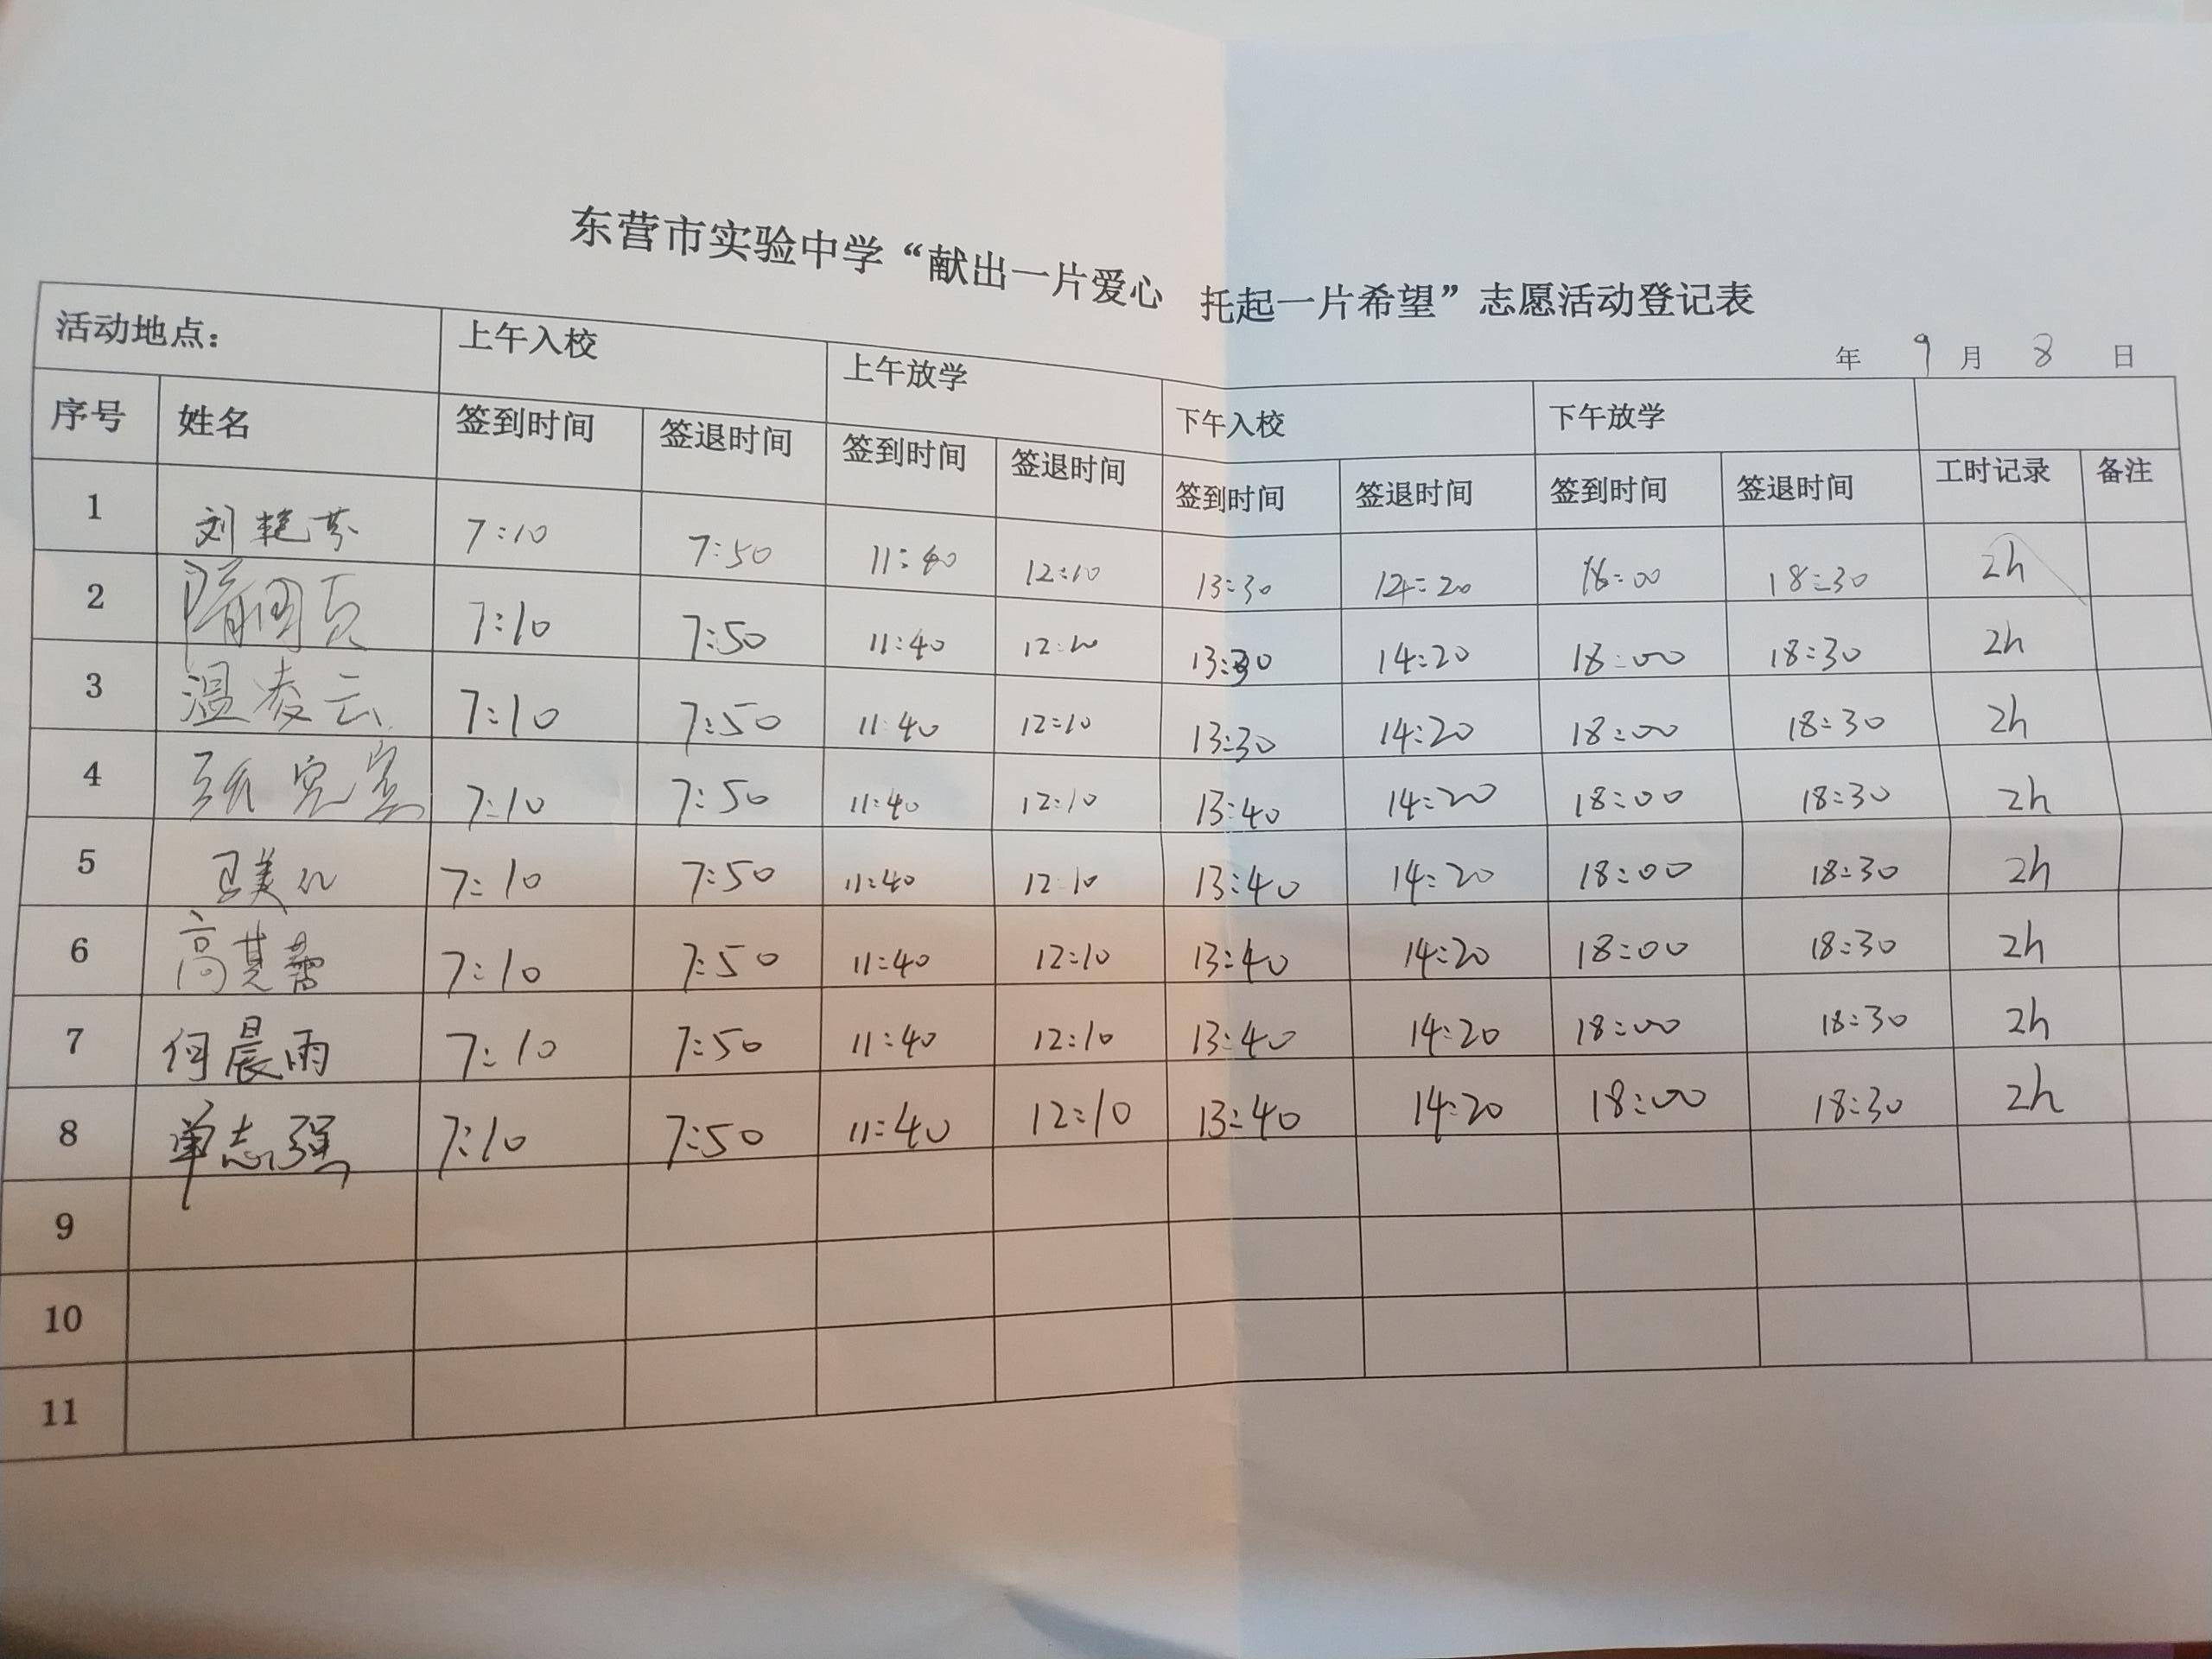 东营市实验中学“献出一片爱心 托起一片希望”志愿活动登记表
年 9 月 8 日
活动地点: 上午入校 上午放学 下午入校 下午放学
序号 姓名 签到时间 签退时间 签到时间 签退时间 签到时间 签退时间 签到时间 签退时间 工时记录 备注
1 刘艳芬 7:10 7:50 11:40 12:10 13:30 14:20 18:00 18:30 2h
2 7:10 7:50 11:40 12:10 13:30 14:20 18:00 18:30 2h
3 温凌云 7:10 7:50 11:40 12:10 13:30 14:20 18:00 18:30 2h
4 7:10 7:50 11:40 12:10 13:40 14:20 18:00 18:30 2h
5 7:10 7:50 11:40 12:10 13:40 14:20 18:00 18:30 2h
6 高 7:10 7:50 11:40 12:10 13:40 14:20 18:00 18:30 2h
7 何晨雨 7:10 7:50 11:40 12:10 13:40 14:20 18:00 18:30 2h
8 单志强 7:10 7:50 11:40 12:10 13:40 14:20 18:00 18:30 2h
9
10
11